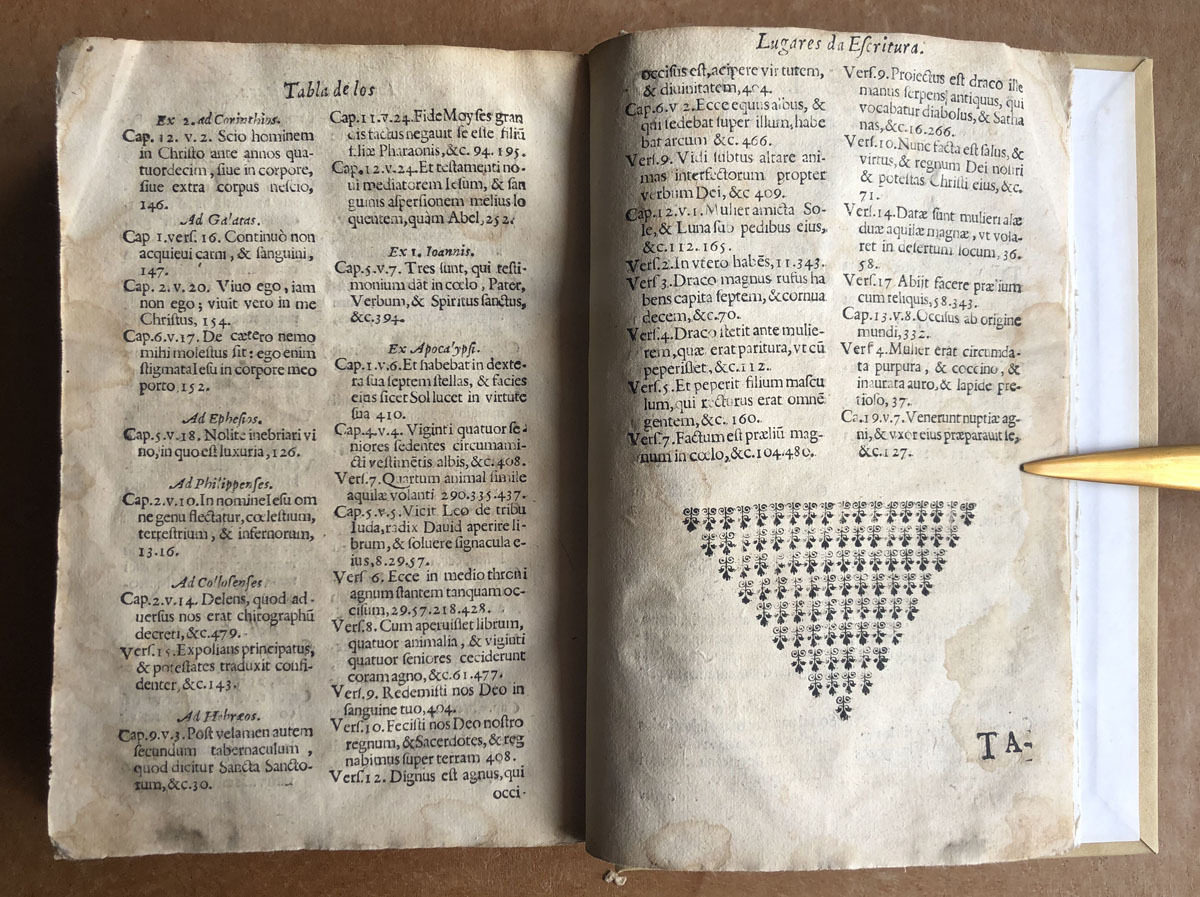 Tabla de los
Ex 2. ad Corinthios.
Cap. 12. v. 2. Scio hominem
in Christo ante annos qua-
tuordecim, siue in corpore,
siue extra corpus nescio,
146.
Ad Galatas.
Cap 1.vers. 16. Continuò non
acquieui carni, & sanguini,
147.
Cap. 2. v. 20. Viuo ego, iam
non ego; viuit vero in me
Christus, 154.
Cap.6.v.17. De cætero nemo
mihi molestus sit: ego enim
stigmata Iesu in corpore meo
porto, 152.
Ad Ephesios.
Cap.5.v.18. Nolite inebriari vi
no, in quo est luxuria, 126.
Ad Philippenses.
Cap.2.v.10. In nomine Iesu om
ne genu flectatur, cœlestium,
terrestrium, & infernorum,
13.16.
Ad Collosenses
Cap.2.v.14. Delens, quod ad-
uersus nos erat chirographũ
decreti, &c.479.
Vers.15. Expolians principatus,
& potestates traduxit confi-
denter, &c.143.
Ad Hebræos.
Cap.9.v.3. Post velamen autem
secundum tabernaculum,
quod dicitur Sancta Sancto-
rum, &c.30.
Cap.11.v.24. Fide Moyses gran
dis factus negauit se esse filiũ
filiæ Pharaonis, &c. 94. 195.
Cap.12.v.24. Et testamenti no-
ui mediatorem Iesum, & san
guinis aspersionem melius lo
quentem, quàm Abel, 252.
Ex 1. Ioannis.
Cap.5.v.7. Tres sunt, qui testi-
monium dãt in cœlo, Pater,
Verbum, & Spiritus sanctus,
&c.394.
Ex Apocalypsi.
Cap.1.v.6. Et habebat in dexte-
ra sua septem stellas, & facies
eius sicet Sol lucet in virtute
sua 410.
Cap.4.v.4. Viginti quatuor se-
niores sedentes circumami-
cti vestimẽtis albis, &c.408.
Vers.7. Quartum animal simile
aquilæ volanti 290.335.437.
Cap.5.v.5. Vicit Leo de tribu
Iuda, radix Dauid aperire li-
brum, & soluere signacula e-
ius, 8.29.57.
Vers 6. Ecce in medio throni
agnum stantem tanquam oc-
cisum, 29.57.218.428.
Vers.8. Cum aperuisset librum,
quatuor animalia, & viginti
quatuor seniores ceciderunt
coram agno, &c.61.477.
Vers.9. Redemisti nos Deo in
sanguine tuo, 404.
Vers.10. Fecisti nos Deo nostro
regnum, & Sacerdotes, & reg
nabimus super terram 408.
Vers.12. Dignus est agnus, qui
occi-
Lugares da Escritura.
occisus est, acipere virtutem,
& diuinitatem, 404.
Cap.6.v 2. Ecce equus albus, &
qui sedebat super illum, habe
bat arcum &c.466.
Vers.9. Vidi subtus altare ani-
mas interfectorum propter
verbum Dei, &c 409.
Cap.12.v.1. Mulier amicta So-
le, & Luna sub pedibus eius,
&c.112.165.
Vers.2. In vtero habẽs, 11.343.
Vers 3. Draco magnus rufus ha
bens capita septem, & cornua
decem, &c.70.
Vers.4. Draco stetit ante mulie-
rem, quæ erat paritura, vt cũ
peperisset, &c.112.
Vers.5. Et peperit filium mascu
lum, qui recturus erat omnẽ
gentem, &c. 160.
Vers.7. Factum est præliũ mag-
num in cœlo, &c.104.480.
Vers.9. Proiectus est draco ille
manus serpens antiquus, qui
vocabatur diabolus, & Satha
nas, &c.16.266.
Vers.10. Nunc facta est salus, &
virtus, & regnum Dei nostri
& potestas Christi eius, &c.
71.
Vers.14. Datæ sunt mulieri alæ
duæ aquilæ magnæ, vt vola-
ret in desertum locum, 36.
58.
Vers.17 Abijt facere prælium
cum reliquis, 58.343.
Cap.13.v.8. Occisus ab origine
mundi, 332.
Vers 4. Mulier erat circumda-
ta purpura, & coccino, &
inaurata auro, & lapide pre-
tioso, 37.
Ca.19.v.7. Venerunt nuptiæ ag-
ni, & vxor eius præparauit se,
&c.127.
TA-